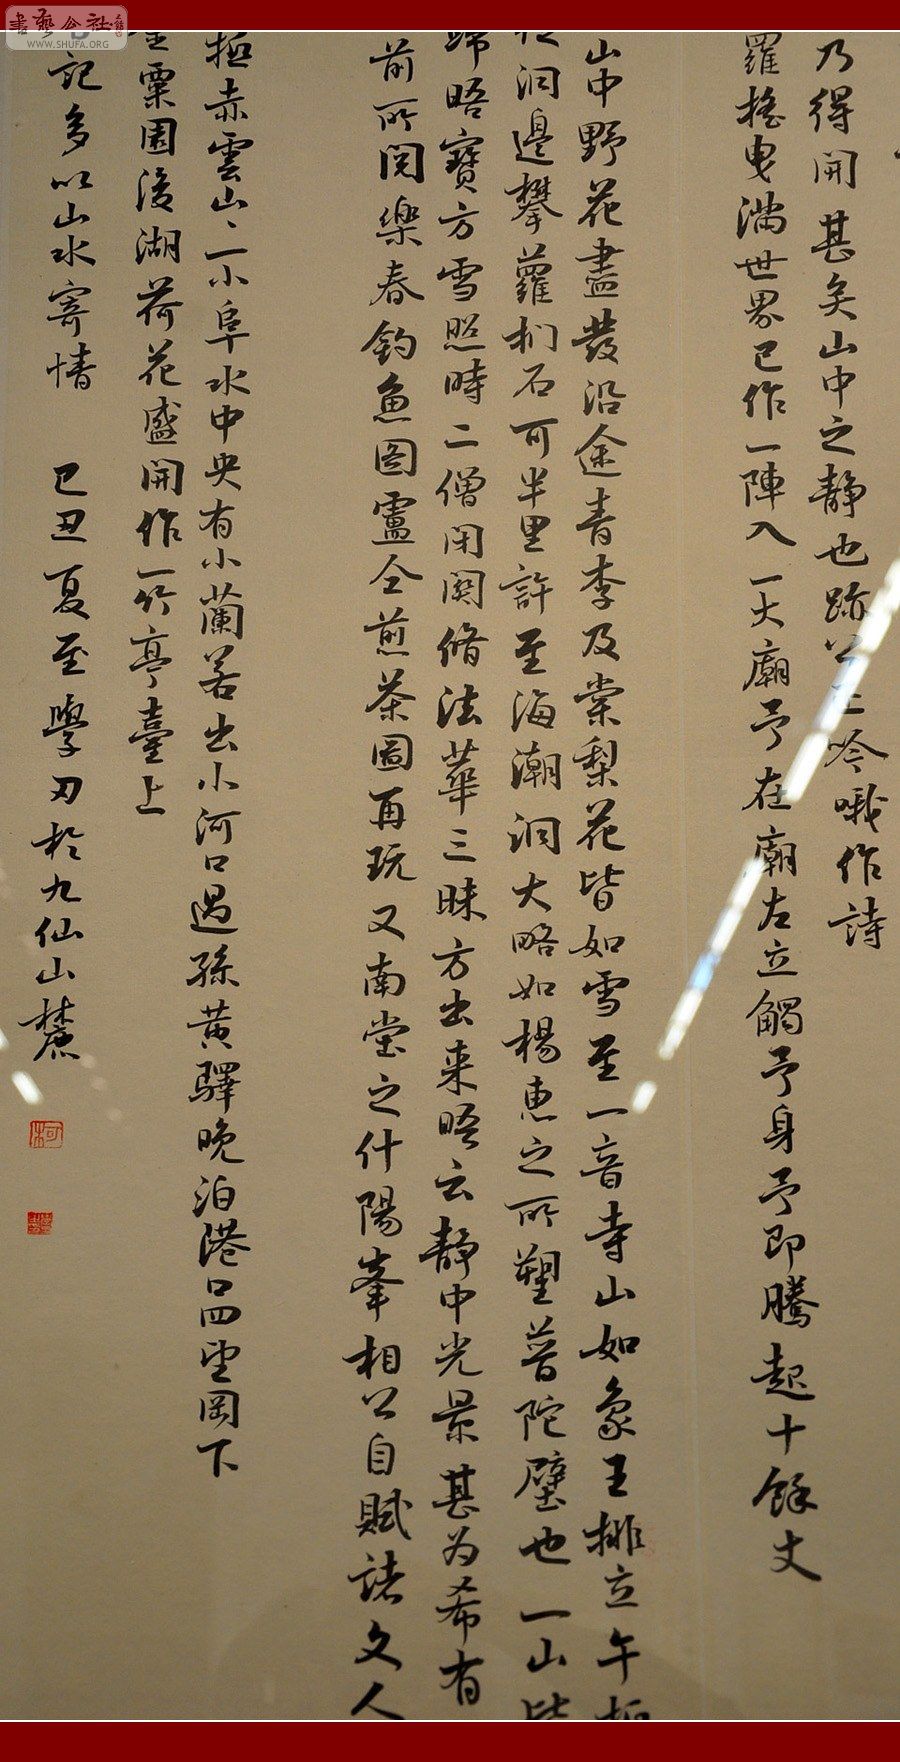 乃得開甚矣山中之靜也
吟哦作詩
羅搖曳滿世界已作一陣入一大廟予在廟左立觸予身予即騰起十餘丈
山中野花盡發沿途青李及棠梨花皆如雪至一音寺山如象王排立午
洞邊攀蘿捫石可半里許至海潮洞大略如楊惠之所塑普陀壁也一山皆
歸晤寶方雪照時二僧閉關脩法華三昧方出来晤云靜中光景甚為希有
前所閱樂春釣魚圖盧仝煎茶圖再玩又南堂之什陽峯相公自賦諸文人
極赤雲山二小阜水中央有小蘭若出小河口過孫黃驛晚泊港口四望岡下
粟園後湖荷花盛開作一竹亭臺上
記多以山水寄情 己丑夏至學刃於九仙山麓
柯
書藝公社
WWW.SHUFA.ORG